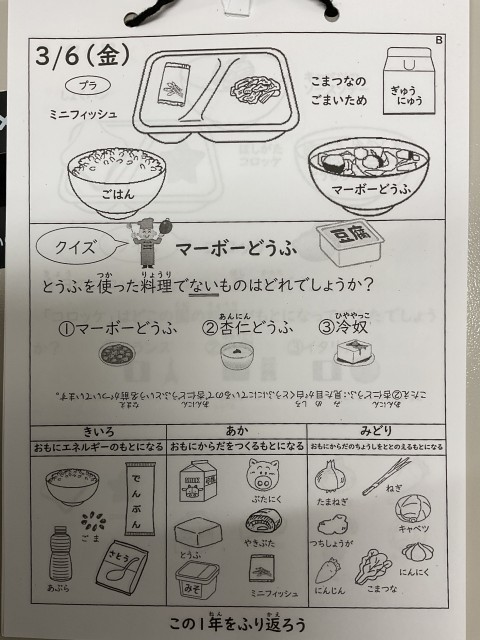 B
3/6(金)
プラ
ミニフィッシュ
こまつなの
ごまいため
ぎゅう
にゅう
ごはん
マーボーどうふ
クイズ
マーボーどうふ
豆腐
とうふを使った料理でないものはどれでしょうか?
つか
りょうり
①マーボーどうふ ②杏仁どうふ ③冷奴
あんにん
ひややっこ
きいろ
おもにエネルギーのもとになる
あか
おもにからだをつくるもとになる
みどり
おもにからだのちょうしをととのえるもとになる
でんぷん
ごま
さとう
あぶら
ぶたにく
とうふ
やきぶた
みそ
ミニフィッシュ
たまねぎ
ねぎ
キャベツ
つちしょうが
にんにく
にんじん
こまつな
この1年をふり返ろう
ねん
かえ